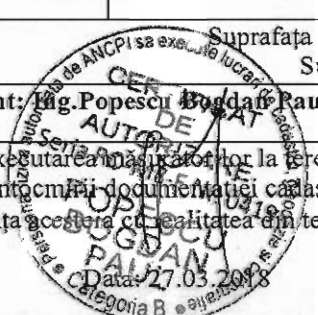 Suprafața
Su
nt: Ing.Popescu Bogdan Pau
executarea măsurătorilor la tere
întocmirii documentației cadas
ța acesteia cu realitatea din te
Data: 27.03.2018
Persoana fizică autorizată de ANCPI să execute lucrări de cadastru
CERTIFICAT
DE
AUTORIZARE
Seria
POPESCU
BOGDAN
PAUL
Categoria B